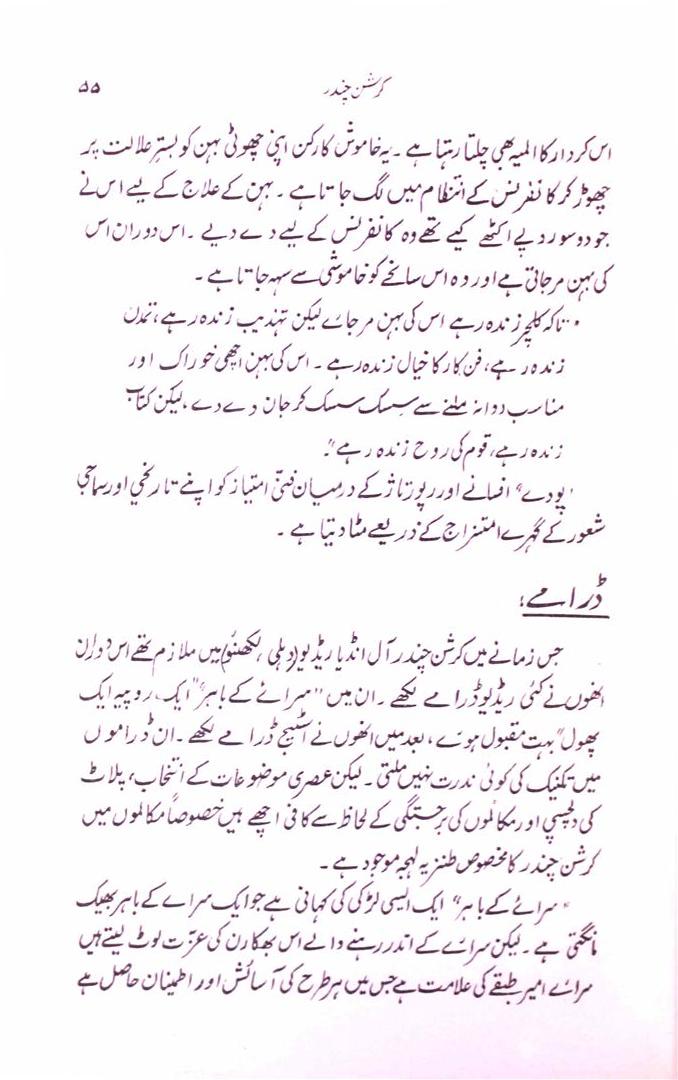 کرشن چندر ۵۵
اس کردار کا المیہ بھی چلتا رہتا ہے ۔ یہ خاموش کارکن اپنی چھوٹی بہن کو بستر علالت پر
چھوڑ کر کانفرنس کے انتظام میں لگ جاتا ہے ۔ بہن کے علاج کے لیے اس نے
جو دو سو روپے اکٹھے کیے تھے وہ کانفرنس کے لیے دے دیے ۔ اس دوران اس
کی بہن مر جاتی ہے اور وہ اس سانحے کو خاموشی سے سہہ جاتا ہے ۔
"تاکہ کلچر زندہ رہے اس کی بہن مر جائے لیکن تہذیب زندہ رہے ، تمدن
زندہ رہے ، فن کار کا خیال زندہ رہے ۔ اس کی بہن اچھی خوراک اور
مناسب دوا نہ ملنے سے سسک سسک کر جان دے دے ، لیکن کتاب
زندہ رہے ، قوم کی روح زندہ رہے"۔
"پودے" افسانے اور رپورتاژ کے درمیان فنی امتیاز کو اپنے تاریخی اور سماجی
شعور کے گہرے امتزاج کے ذریعے مٹا دیتا ہے ۔
ڈرامے :
جس زمانے میں کرشن چندر آل انڈیا ریڈیو (دہلی ، لکھنؤ) میں ملازم تھے اس دوران
انھوں نے کئی ریڈیو ڈرامے لکھے ۔ ان میں "سرائے کے باہر" "ایک روپیہ ایک
پھول" بہت مقبول ہوئے ، بعد میں انھوں نے اسٹیج ڈرامے لکھے ۔ ان ڈراموں
میں تکنیک کی کوئی ندرت نہیں ملتی ۔ لیکن عصری موضوعات کے انتخاب ، پلاٹ
کی دلچسپی اور مکالموں کی برجستگی کے لحاظ سے کافی اچھے ہیں خصوصاً مکالموں میں
کرشن چندر کا مخصوص طنزیہ لہجہ موجود ہے ۔
"سرائے کے باہر" ایک ایسی لڑکی کی کہانی ہے جو ایک سرائے کے باہر بھیک
مانگتی ہے ۔ لیکن سرائے کے اندر رہنے والے اس بھکارن کی عزت لوٹ لیتے ہیں
سرائے امیر طبقے کی علامت ہے جس میں ہر طرح کی آسائش اور اطمینان حاصل ہے